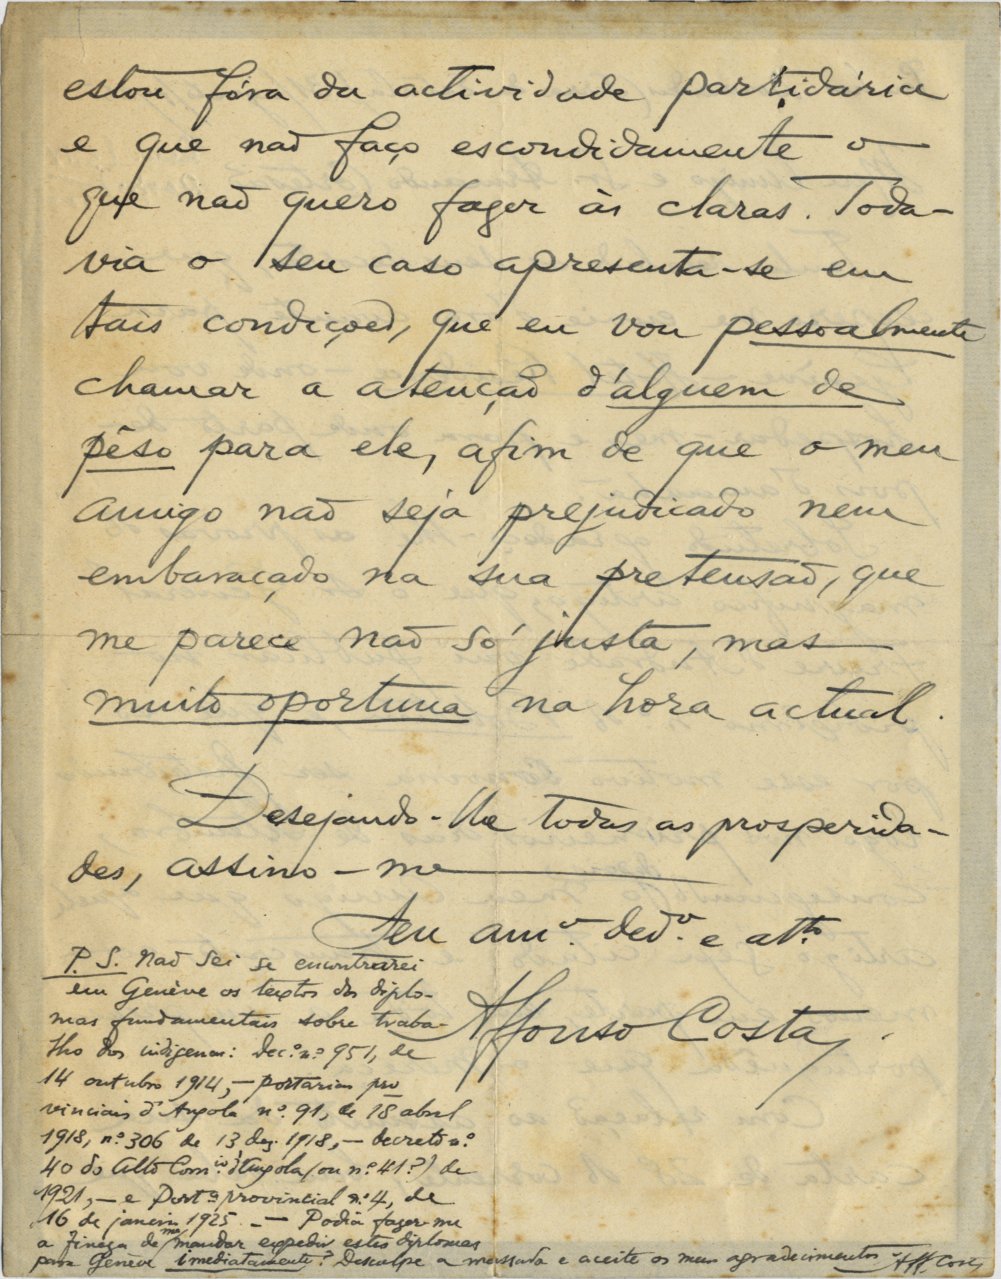 estou fóra da actividade partidária
e que não faço escondidamente o
que não quero fazer às claras. Toda-
via o seu caso apresenta-se em
tais condições, que eu vou pessoalmente
chamar a atenção d'alguem de
pêso para ele, afim de que o meu
amigo não seja prejudicado nem
embaraçado na sua pretensão, que
me parece não só justa, mas
muito oportuna na hora actual.
Desejando-lhe todas as prosperida-
des, assino-me
Seu amº. dedº. e attº
Affonso Costa.
P. S. Não sei se encontrarei
em Genève os textos dos diplo-
mas fundamentais sobre traba-
lho dos indigenas: dec.º nº 951, de
14 outubro 1914, — portarias pro
vinciais d'Angola nº. 91, de 18 abril
1918, nº 306 de 13 dez. 1918, — decreto nº
40 do Alto Com.io d'Angola (ou nº 41?) de
1921, — e Port.ª provincial nº 4, de
16 de janeiro 1925. — Podia fazer-me
a fineza de me mandar expedir estes diplomas
para Genève imediatamente? Desculpe a massada e aceite os meus agradecimentos Aff Costa